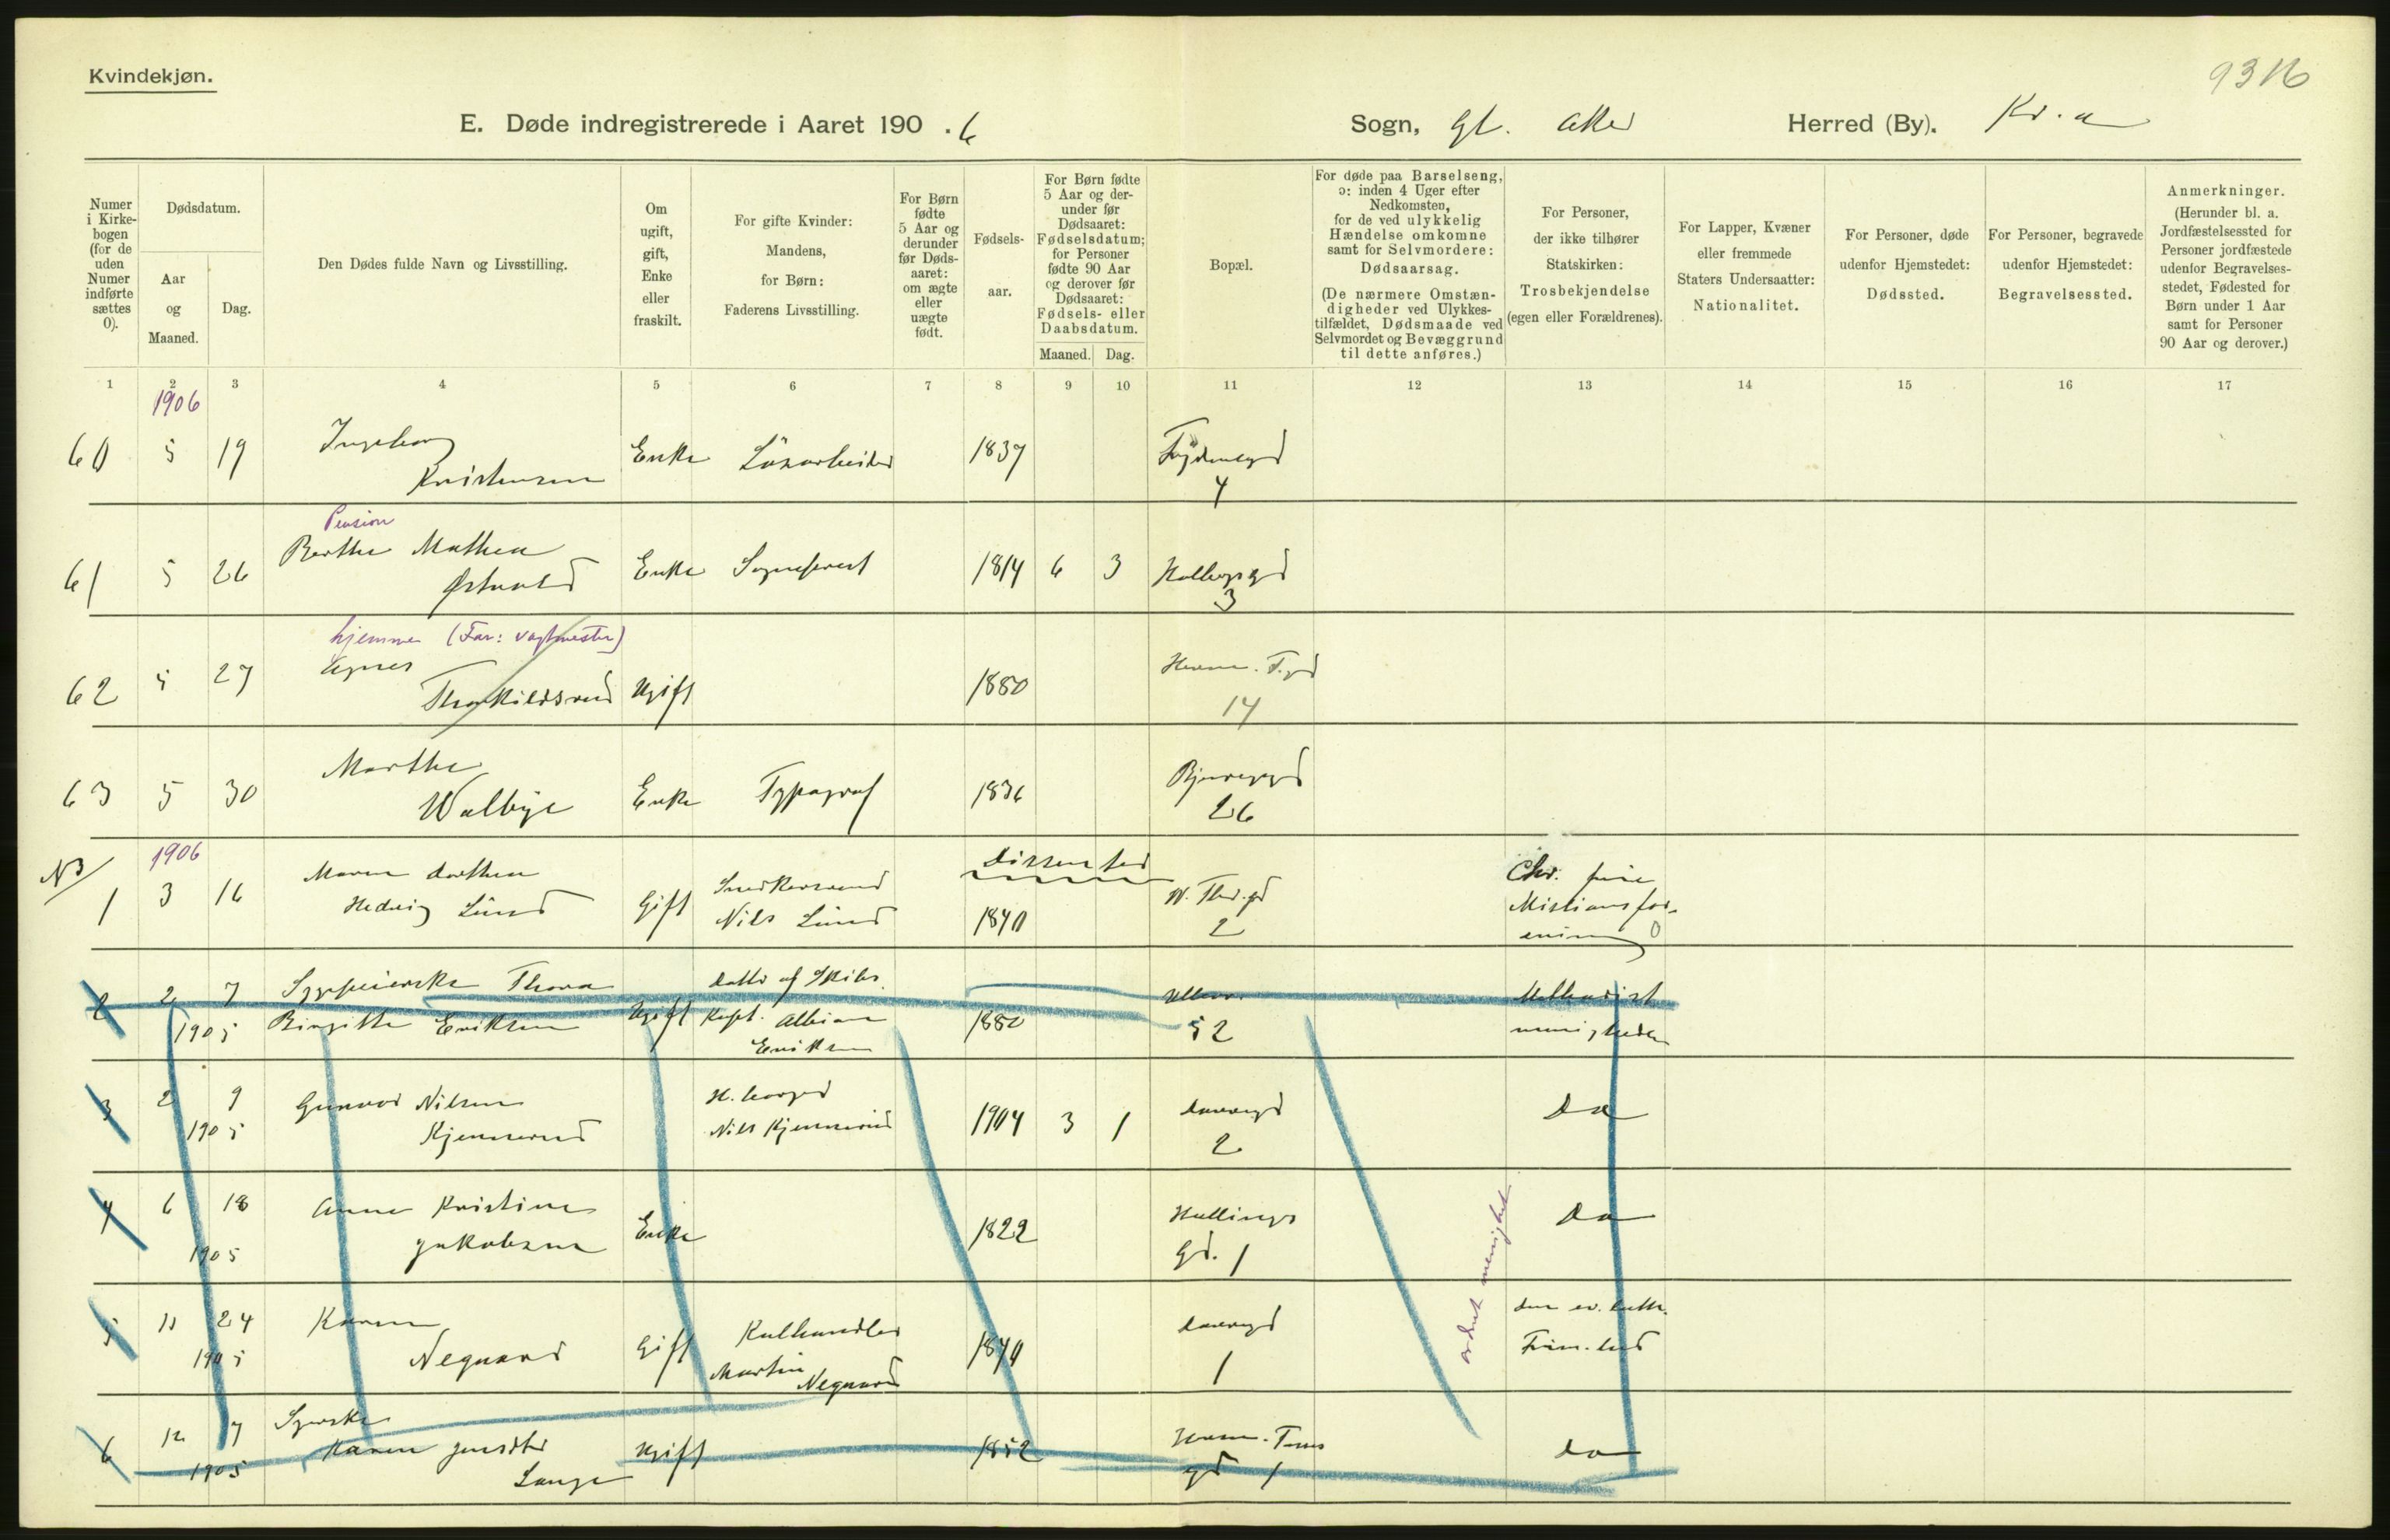 Kvindekjøn.
9316
E. Døde indregistrerede i Aaret 190.6
Sogn, Gl. Aker
Herred (By). Kr.a
Numer i Kirkebogen (for de uden Numer indførte sættes 0).
Dødsdatum.
Aar og Maaned.
Dag.
Den Dødes fulde Navn og Livsstilling.
Om ugift, gift, Enke eller fraskilt.
For gifte Kvinder: Mandens, for Børn: Faderens Livsstilling.
For Børn fødte 5 Aar og derunder før Dødsaaret: om ægte eller uægte født.
Fødselsaar.
For Børn fødte 5 Aar og derunder før Dødsaaret: Fødselsdatum; for Personer fødte 90 Aar og derover før Dødsaaret: Fødsels- eller Daabsdatum.
Maaned. Dag.
Bopæl.
For døde paa Barselseng, ɔ: inden 4 Uger efter Nedkomsten, for de ved ulykkelig Hændelse omkomne samt for Selvmordere: Dødsaarsag.
(De nærmere Omstændigheder ved Ulykkestilfældet, Dødsmaade ved Selvmordet og Bevæggrund til dette anføres.)
For Personer, der ikke tilhører Statskirken: Trosbekjendelse (egen eller Forældrenes).
For Lapper, Kvæner eller fremmede Staters Undersaatter: Nationalitet.
For Personer, døde udenfor Hjemstedet: Dødssted.
For Personer, begravede udenfor Hjemstedet: Begravelsessted.
Anmerkninger.
(Herunder bl. a. Jordfæstelsessted for Personer jordfæstede udenfor Begravelsesstedet, Fødested for Børn under 1 Aar samt for Personer 90 Aar og derover.)
1 2 3 4 5 6 7 8 9 10 11 12 13 14 15 16 17
1906
60 5 19 Ingeborg Kristensen Enke Løsarbeider 1837 4
Pension
61 5 26 Berthe Mathea Østvold Enke Sogneprest 1814 6 3 Holbergsgd 3
hjemme (Far: vagtmester)
62 5 27 Agnes Thorkildsrud Ugift 1880 Herm. F.gd 14
63 5 30 Marthe Walbye Enke Typograf 1836 Bjerregd 26
1906
Dissenter
1 3 16 Maren Dorthea Hedvig Lund Gift Snedkersvend Nils Lund 1840 W. Thr.gd 2 Chr. frie Missionsforening
2 2 7 1905 Sygepleierske Thora Birgitte Eriksen Ugift Datter af Skibs. kapt. Albian Eriksen 1880 Ullev. 52 Methodist menigheden
3 2 9 1905 Gunvor Nilsen Kjennerud Nils Kjennerud 1904 3 1 2 Do
4 6 18 1905 Anne Kristine Jakobsen Enke 1822 Hallings Gd. 1 Do
5 11 24 1905 Karen Negaard Gift Kulhandler Martin Negaard 1870 1 den ev. luth. Frim.
menighet
6 12 7 1905 Syerske Karen Jensdtr Lange Ugift 1852 Herm. Foss gd 1 do